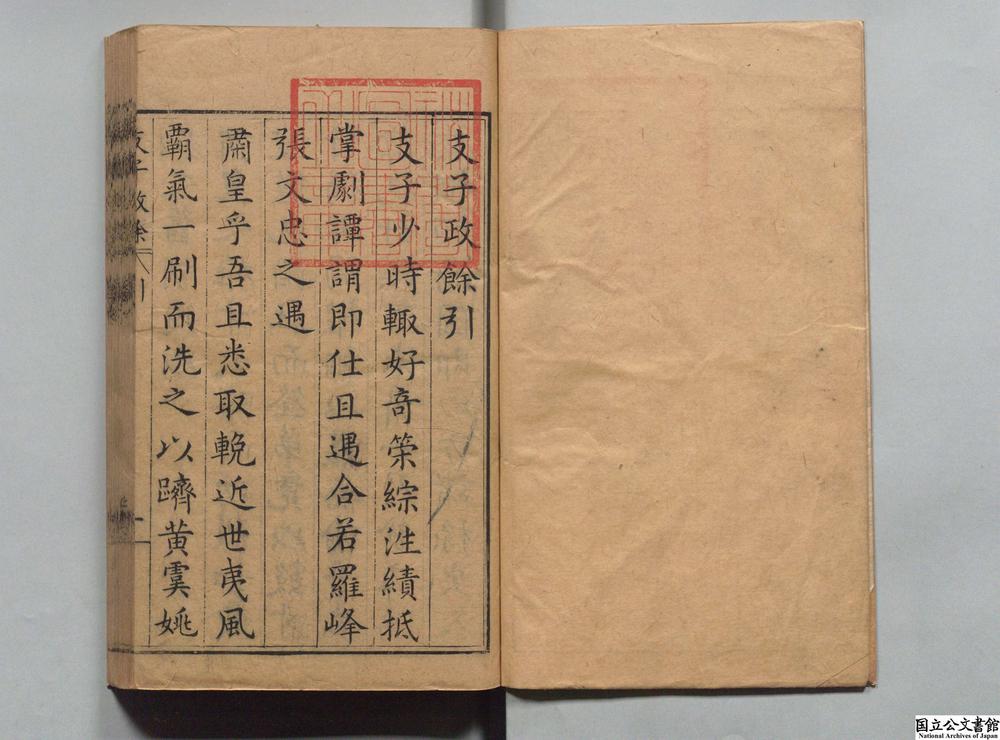 支子政餘引
支子少時輙好奇筞綜泩績抵
掌劇譚謂即仕且遇合若羅峰
張文忠之遇
肅皇乎吾且悉取輓近世夷風
覇氣一刷而洗之以躋黃虞姚
支子政餘 引 一
国立公文書館
National Archives of Japan